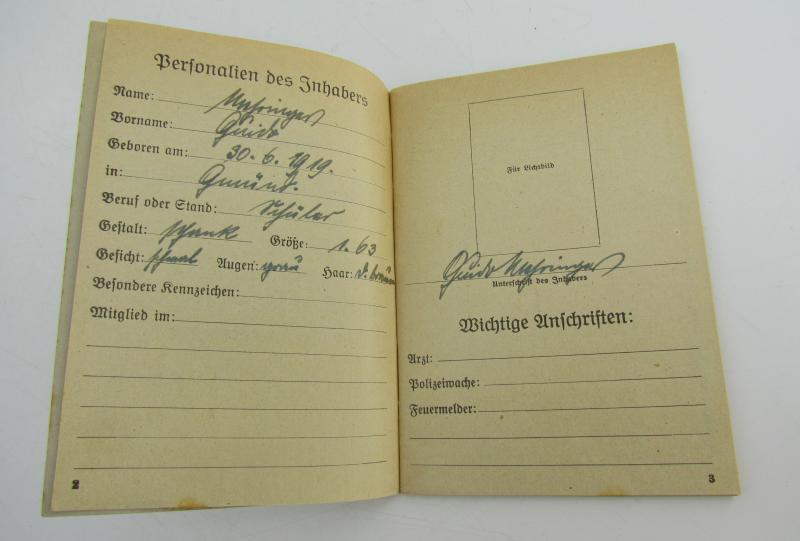 Personalien des Inhabers
Name:
Vorname: Guido
Geboren am: 30. 6. 1919.
in: Gmünd.
Beruf oder Stand: Schüler
Gestalt: schlank Größe: 1.63
Gesicht: schmal Augen: grau Haar: d. braun
Besondere Kennzeichen:
Mitglied im:
2
Für Lichtbild
Guido
Unterschrift des Inhabers
Wichtige Anschriften:
Arzt:
Polizeiwache:
Feuermelder:
3